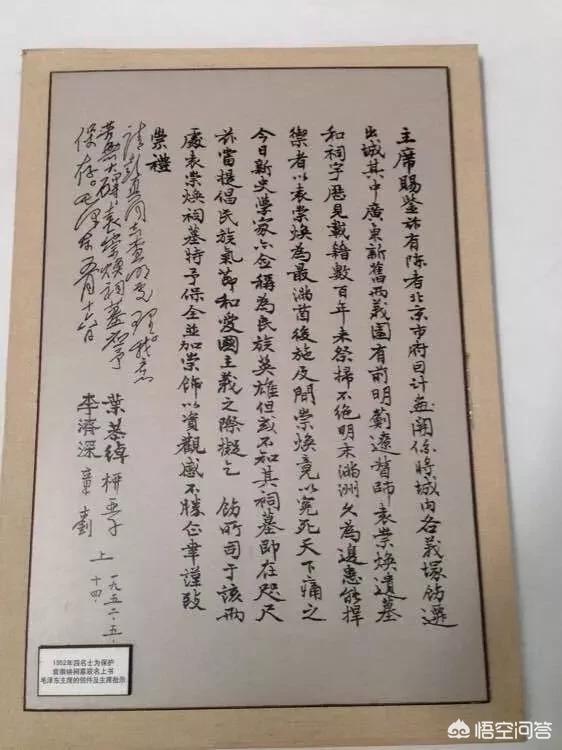 主席賜鑒玆有陳者北京市府因計畫關係將城內各義塚飭遷
出城其中廣東新舊兩義園有前明薊遼督師袁崇煥遺墓
和祠宇歷見載籍數百年來祭掃不絕明末滿洲久為邊患能捍
禦者以袁崇煥為最滿酋後施反間崇煥竟以冤死天下痛之
今日新史學家亦僉稱為民族英雄但或不知其祠墓即在咫尺
玆當提倡民族氣節和愛國主義之際擬乞 飭所司于該兩
處袁崇煥祠墓特予保全並加崇飾以資觀感不勝企幸謹致
崇禮
葉恭綽 柳亞子
李濟深 章士釗 上 一九五二·五·
十四·
請彭真同志查明處理。我意
若無大礙,袁崇煥祠墓應予
保存。毛澤東 五月十六日
1952年四名士为保护
袁崇焕祠墓联名上书
毛泽东主席的信件及主席批示
悟空问答